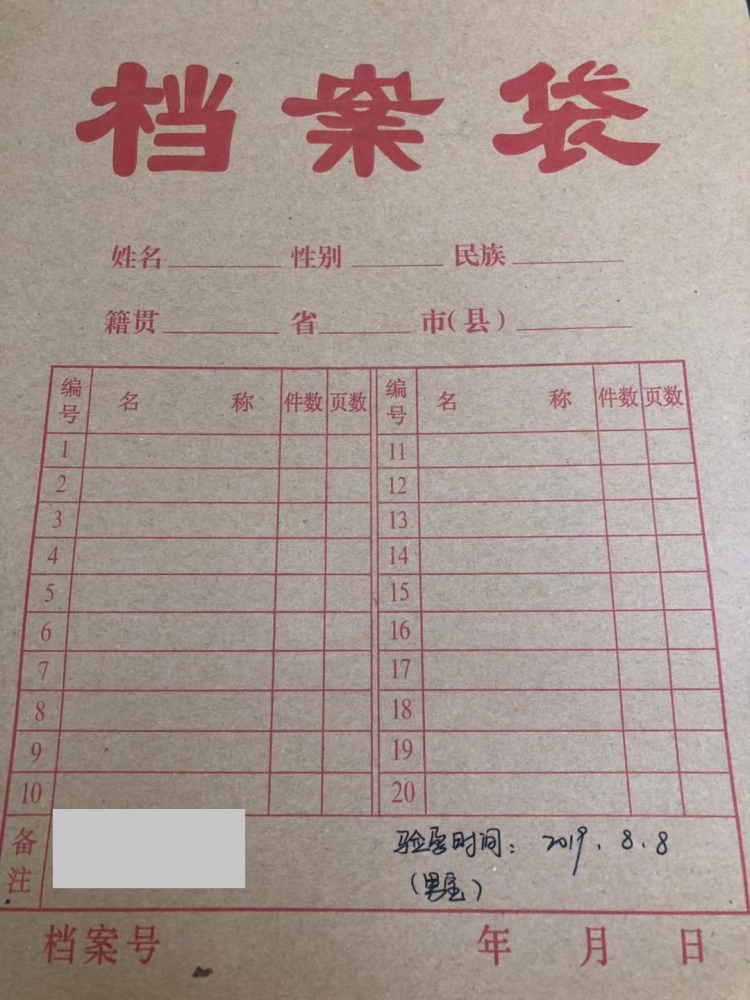 档案袋
姓名 性别 民族
籍贯 省 市(县)
编号 名称 件数 页数 编号 名称 件数 页数
1 11
2 12
3 13
4 14
5 15
6 16
7 17
8 18
9 19
10 20
备注 验孕时间：2019.8.8
(男宝)
档案号 年 月 日